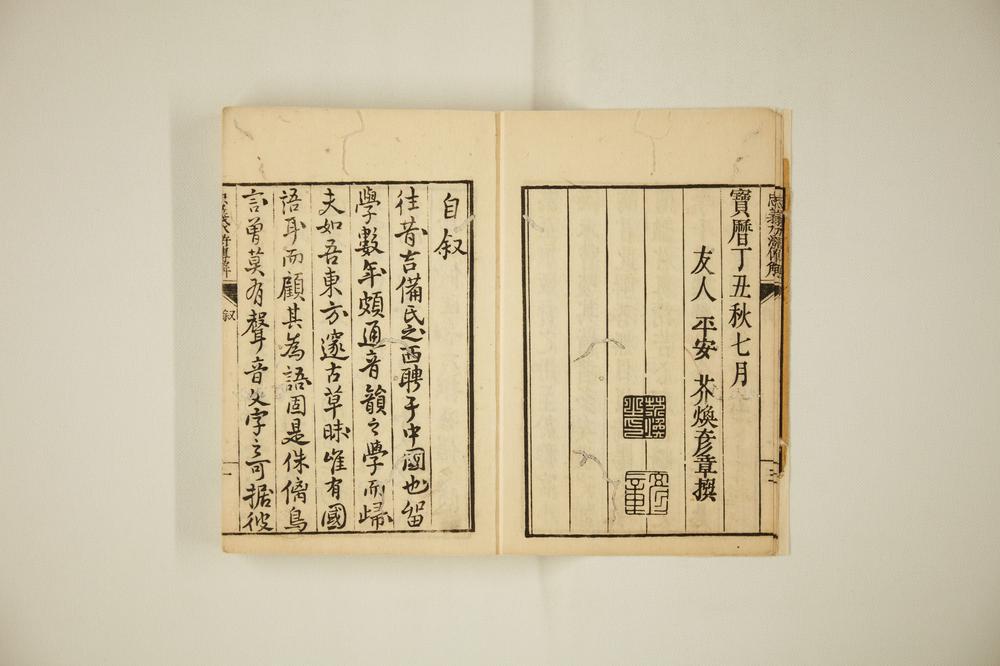 忠義水滸傳解
三
寶曆丁丑秋七月
友人 平安 芥煥彥章撰
自叙
往昔吉備氏之西聘于中國也留
學數年頗通音韻之學而歸
夫如吾東方邃古草昧唯有國
語耳而顧其為語固是侏𠌯鳥
言曽莫有聲音文字之可據彼
忠義水滸傳解
叙
一